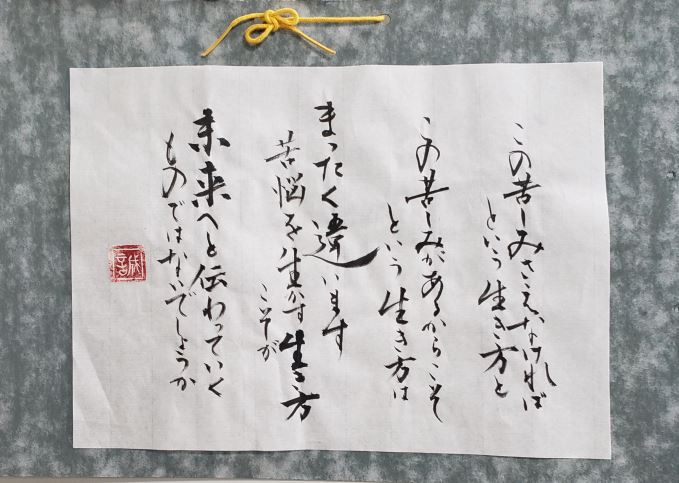 この苦しみさえなければ
という生き方と
この苦しみがあるからこそ
という生き方は
まったく違います
苦悩を生かす生き方
こそが
未来へと伝わっていく
ものではないでしょうか
誠